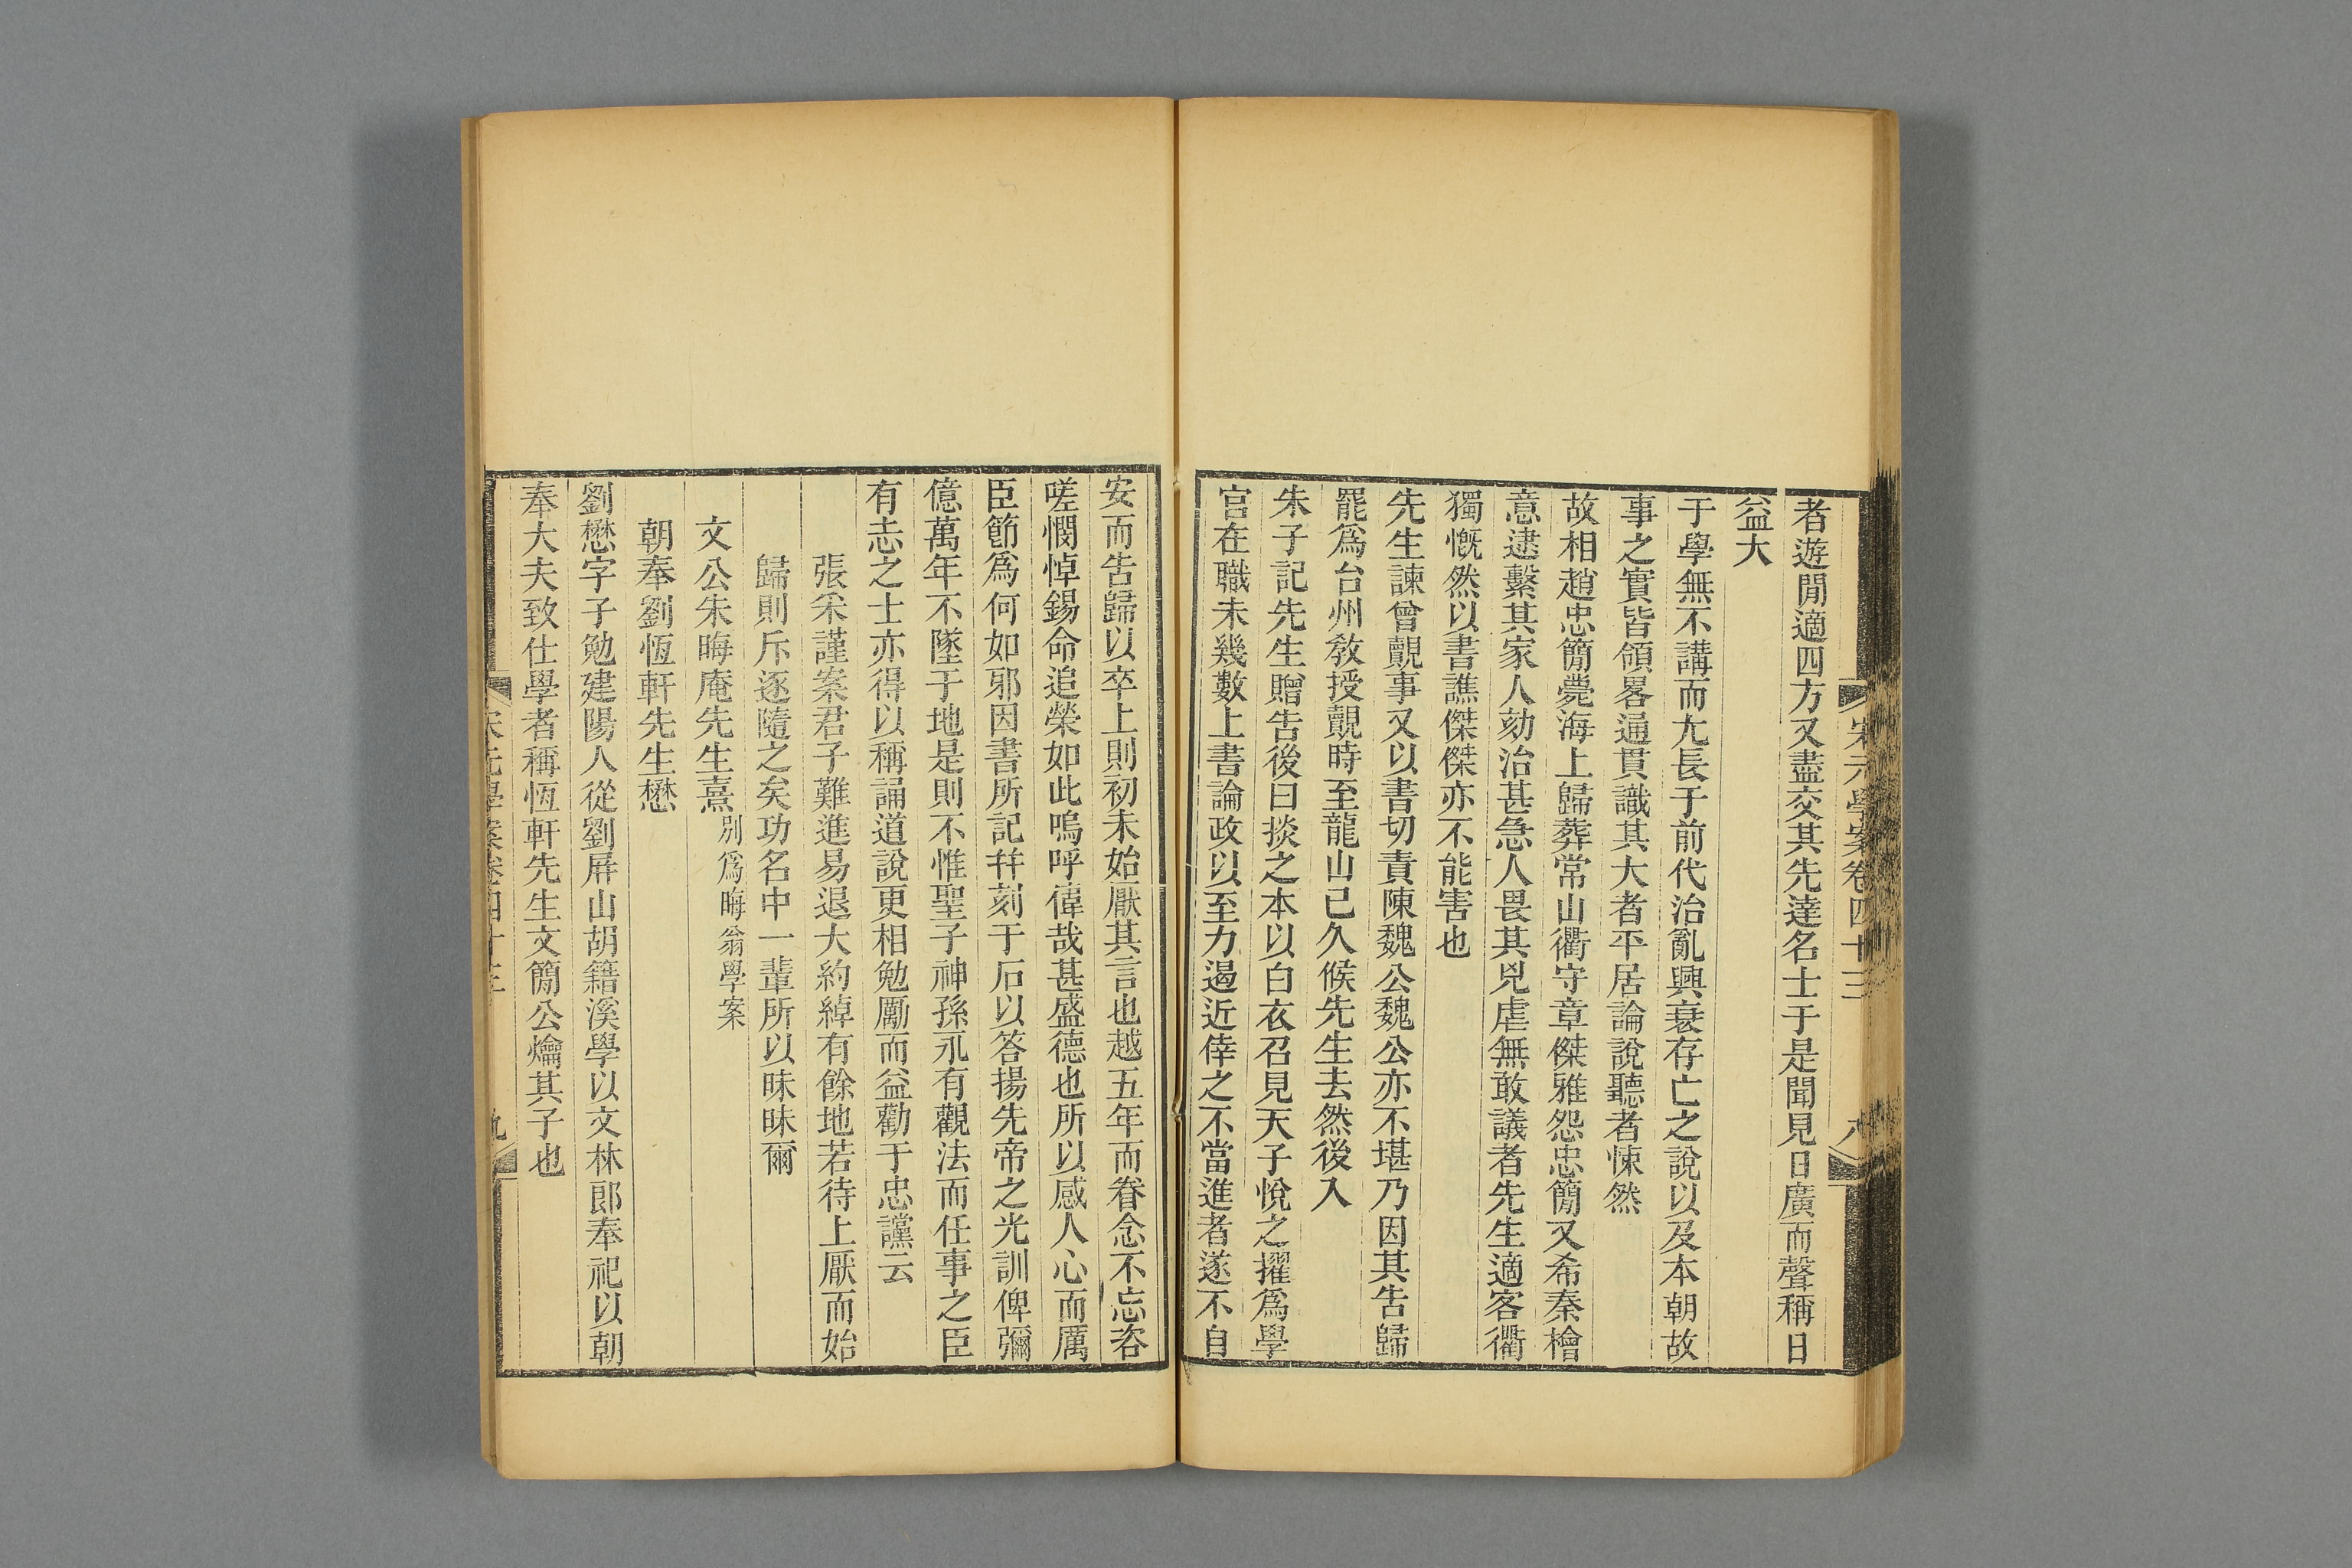 宋元學案卷四十三
八
者遊閒適四方又盡交其先達名士于是聞見日廣而聲稱日
益大
于學無不講而尤長于前代治亂興衰存亡之說以及本朝故
事之實皆領畧通貫識其大者平居論說聽者悚然
故相趙忠簡薨海上歸葬常山衢守章傑雅怨忠簡又希秦檜
意逮繫其家人劾治甚急人畏其兇虐無敢議者先生適客衢
獨慨然以書譙傑傑亦不能害也
先生諫曾覿事又以書切責陳魏公魏公亦不堪乃因其告歸
罷爲台州敎授覿時至龍山已久候先生去然後入
朱子記先生贈告後曰掞之本以白衣召見天子悅之擢爲學
官在職未幾數上書論政以至力遏近倖之不當進者遂不自
安而告歸以卒上則初未始厭其言也越五年而眷念不忘咨
嗟憫悼錫命追榮如此嗚呼偉哉甚盛德也所以感人心而厲
臣節爲何如邪因書所記幷刻于石以答揚先帝之光訓俾彌
億萬年不墜于地是則不惟聖子神孫永有觀法而任事之臣
有志之士亦得以稱誦道說更相勉勵而益勸于忠讜云
張采謹案君子難進易退大約綽有餘地若待上厭而始
歸則斥逐隨之矣功名中一輩所以昧昧爾
文公朱晦庵先生熹別爲晦翁學案
朝奉劉恆軒先生懋
劉懋字子勉建陽人從劉屛山胡籍溪學以文林郞奉祀以朝
奉大夫致仕學者稱恆軒先生文簡公爚其子也
宋元學案卷四十三
九